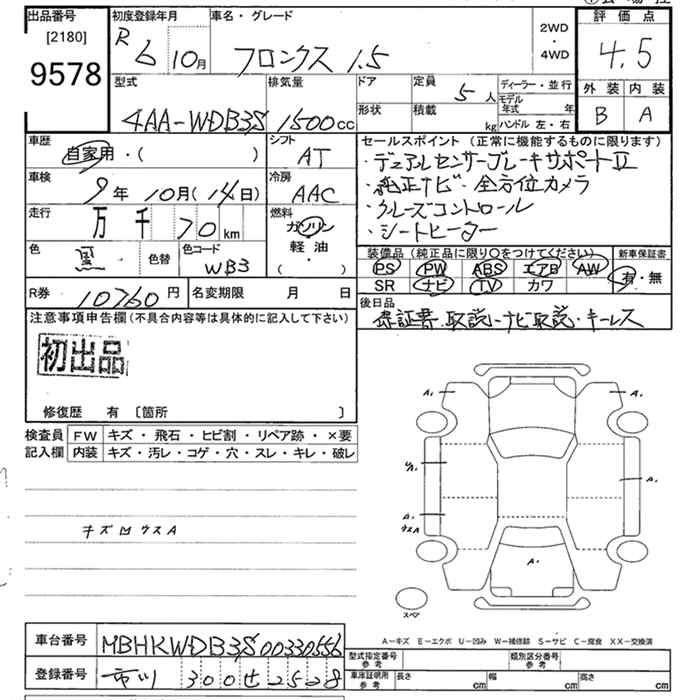 出品番号 初度登録年月 車名・グレード 評価点
[2180] R6 10月 フロンクス 1.5 2WD ・ 4WD 4.5
9578
型式 排気量 ドア 定員 5人 ディーラー・並行 外装 内装
4AA-WDB3S 1500cc 形状 積載 kg モデル年式 年 B A
ハンドル 左・右
車歴 シフト セールスポイント (正常に機能するものに限ります)
自家用・( ) AT ・デュアルセンサーブレーキサポートⅡ
車検 冷房 ・純正ナビ・全方位カメラ
9年10月(14日) AAC ・クルーズコントロール
走行 万 千 70 km 燃料 ガソリン ・シートヒーター
軽・油
( )
色 黒 色替 色コード WB3
装備品 (純正品に限り〇をつけてください) 新車保証書
PS PW ABS エアB AW 有・無
SR ナビ TV カワ
R券 10760円 名変期限 月 日 後日品
保証書・取説・ナビ取説・キーレス
注意事項申告欄(不具合内容等は具体的に記入して下さい)
初出品
修復歴 有 〔箇所 〕
検査員 FW キズ・飛石・ヒビ割・リペア跡・×要
記入欄 内装 キズ・汚レ・コゲ・穴・スレ・キレ・破レ
キズ凹ウスA
A₁ A₁
A₁
ウスA
A₁
スペア
A-キズ E-エクボ U-凹み W-補修跡 S-サビ C-腐食 XX-交換済
車台番号 MBHKWDB3S00330556
型式指定番号 参考 類別区分番号 参考
登録番号 市川 300 せ 2528
車庫証明用 参考 長さ cm 幅 cm 高さ cm